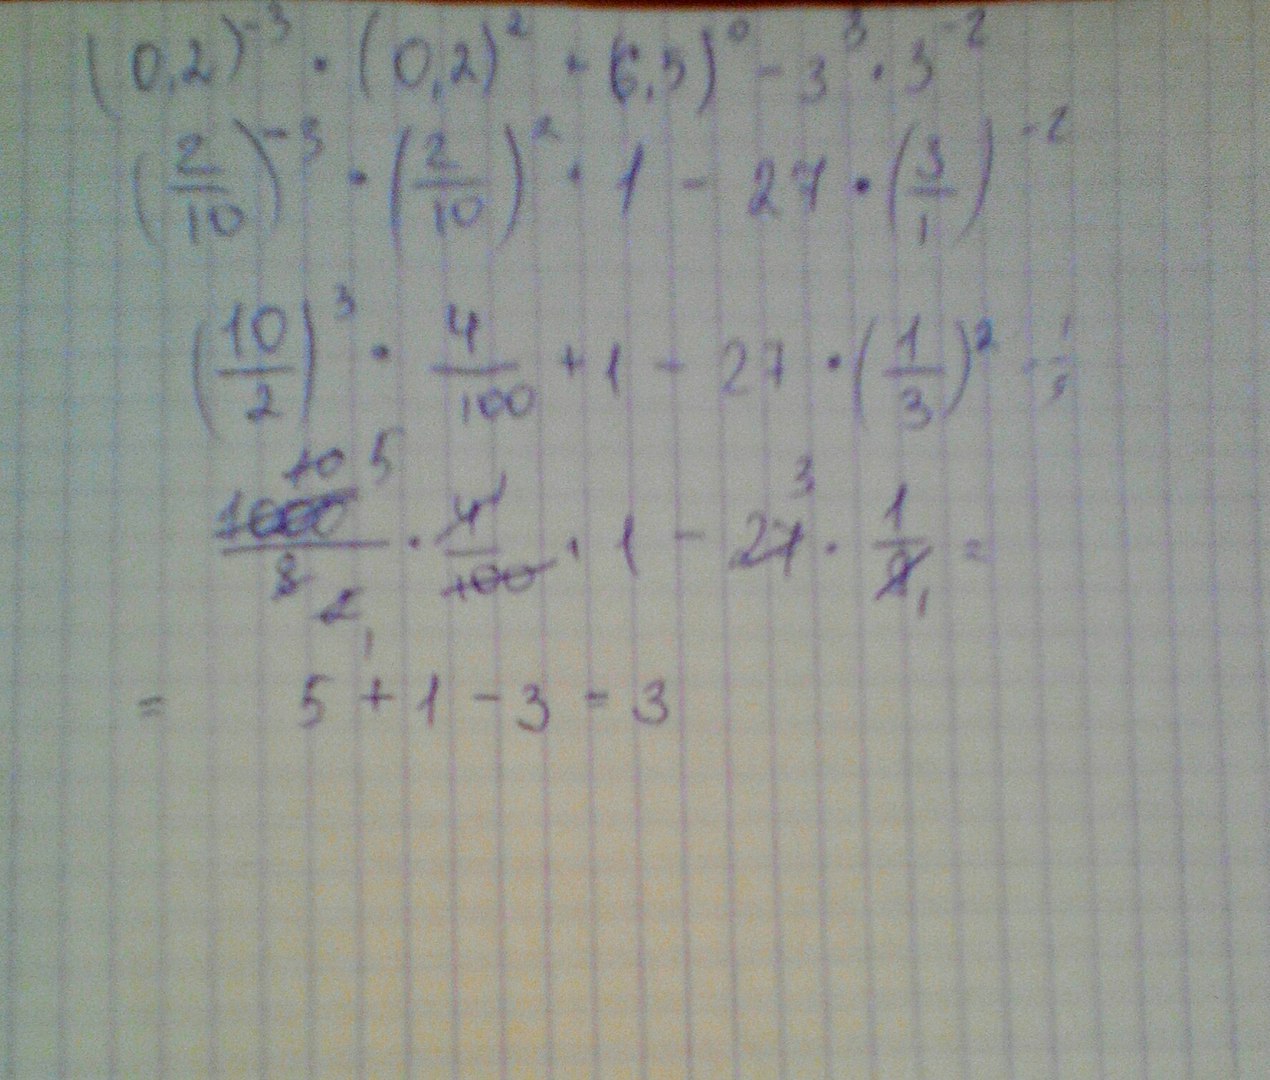 (0,2)⁻³ · (0,2)² + (6,5)⁰ - 3³ · 3⁻²
(2/10)⁻³ · (2/10)² + 1 - 27 · (3/1)⁻²
(10/2)³ · 4/100 + 1 - 27 · (1/3)²
1000/8 10 5 2 1 · 4/100 1 + 1 - 27 3 · 1/9 1 =
= 5 + 1 - 3 = 3